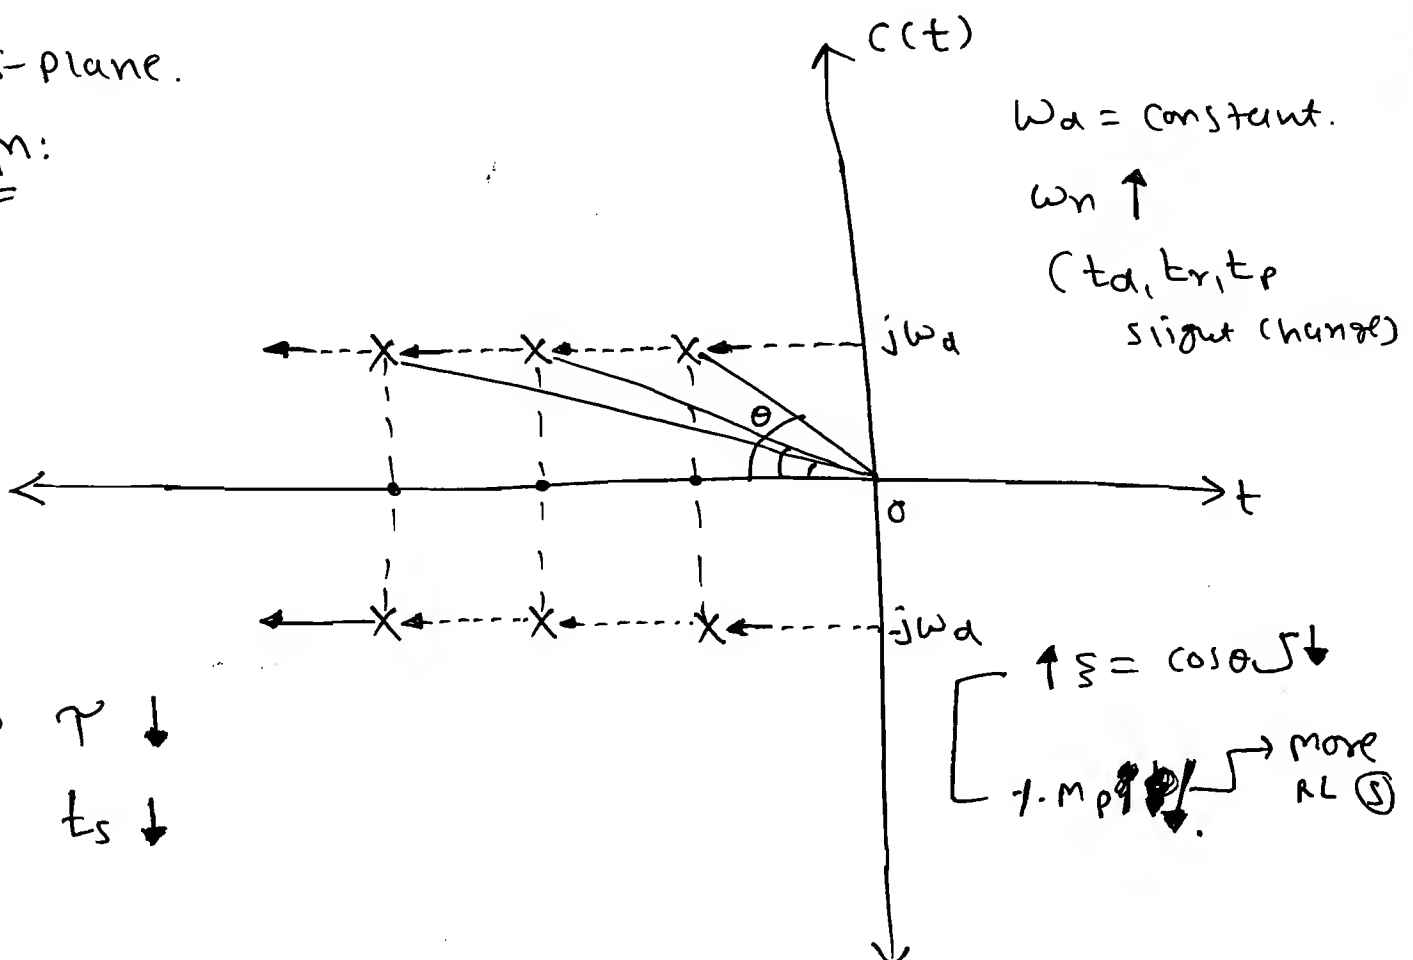 s-plane.
n:
C(t)
ωd = constant.
ωn ↑
(td, tr, tp
slight change)
jωd
θ
0
t
-jωd
τ ↓
ts ↓
↑ ξ = cosθ ↓
%. Mp ↓. → more
RL (S)